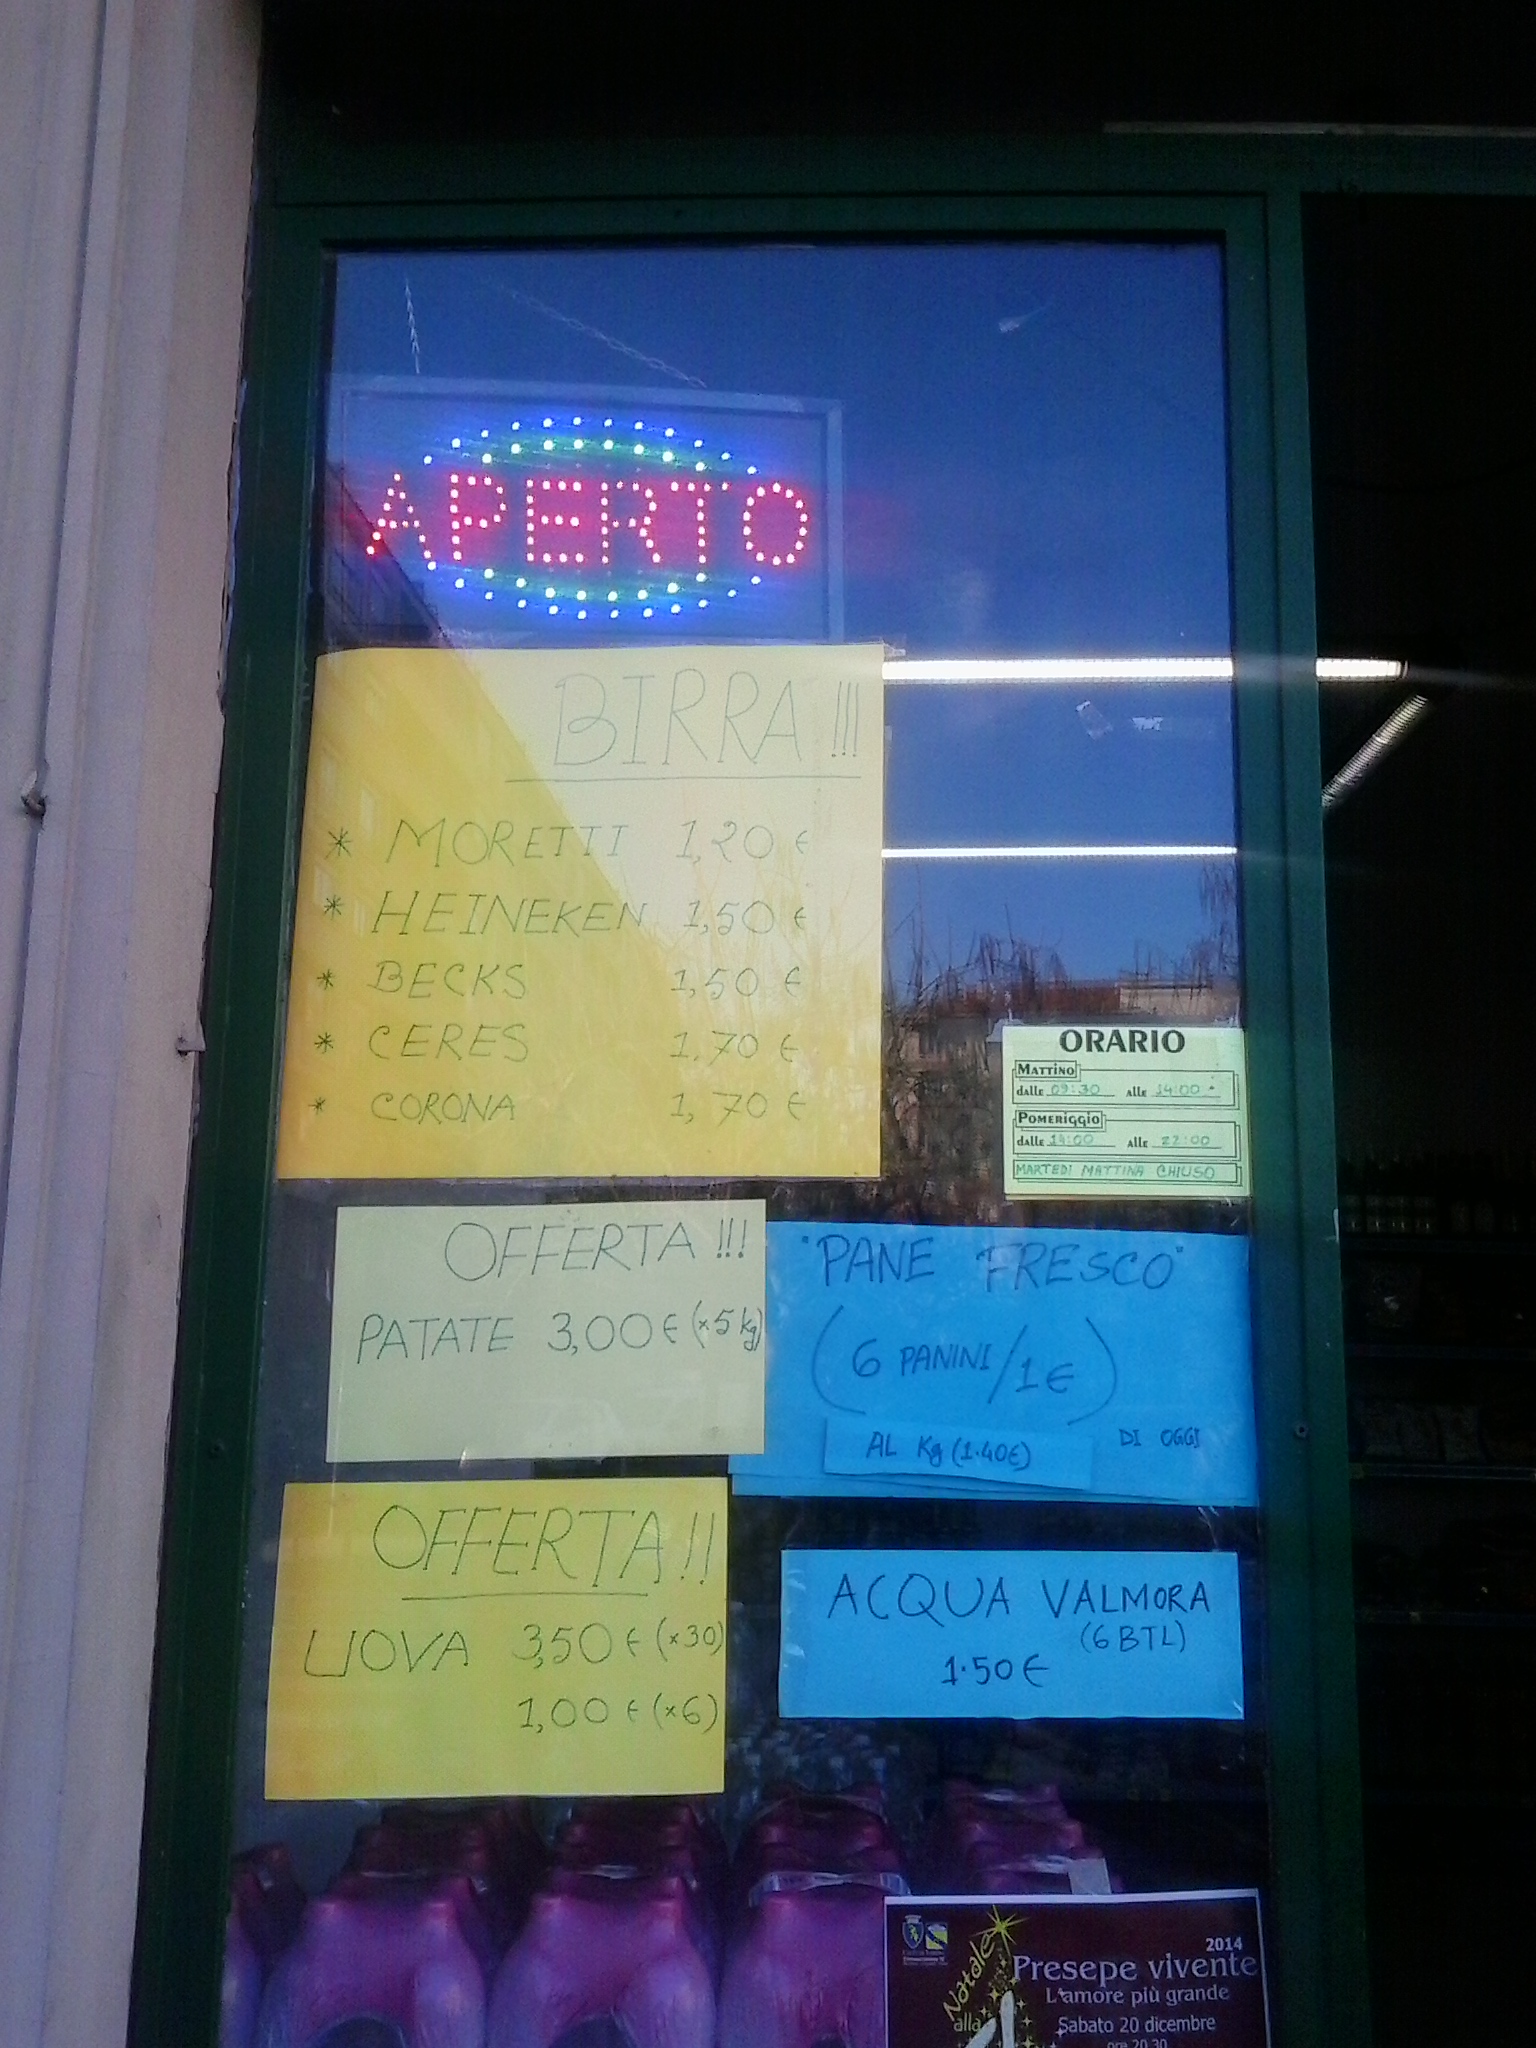 APERTO
BIRRA!!!
* MORETTI 1,20 €
* HEINEKEN 1,50 €
* BECKS 1,50 €
* CERES 1,70 €
* CORONA 1,70 €
ORARIO
MATTINO
dalle 09:30 alle 14:00
POMERIGGIO
dalle 14:00 alle 22:00
MARTEDI MATTINA CHIUSO
OFFERTA!!!
PATATE 3,00€ (x5 kg)
"PANE FRESCO"
(6 PANINI/1€)
AL Kg (1.40€)
DI OGGI
OFFERTA!!
UOVA 3,50 € (x30)
1,00 € (x6)
ACQUA VALMORA
(6 BTL)
1.50€
2014
Natale
alla
Presepe vivente
L'amore più grande
Sabato 20 dicembre
ore 20.30